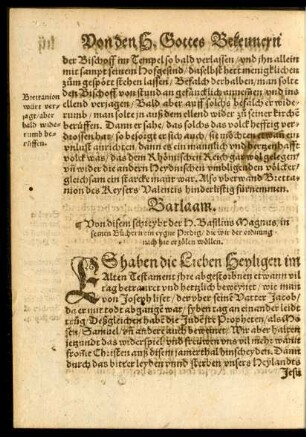 Von den H. Gottes Bekennern
der Bischoff im Tempel so bald verlassen / und ihn allein
mit sampt seinem Hofgesind / daselbst hett menigklichen
zum gespött stehen lassen / Befalch derhalben / man solte
den Bischoff von stund an gefäncklich annemen / und ins
ellend verjagen / Bald aber auff solchs befalch er wider-
rumb / man solte jn auß dem ellend wider zu seiner kirchē
berüffen. Dann er sahe / das solchs das volck hefftig ver-
drossen hat / so besorgt er sich auch / sie möchten etwan ein
unlust anrichten / dann es ein manlich und hertzenhafft
volck was / das dem Rhömischen Reich gar wol gelegen
uñ wider die andern Heydnischen umbligenden völcker /
gleichsam ein starcke maur war. Also uberwand Bretta-
nion des Keysers Valentis hinderlistig fürnemmen.
Brettanion
wirt ver-
jagt / aber
bald wider
rumb be-
rüffen.
Barlaam.
¶ Von disem schreybt der H. Basilius Magnus, in
seinen Büchern ein eygne Predig / die wir der ordnung
nach hie erzölen wöllen.
ES haben die Lieben Heyligen im
Alten Testament jhre abgestorbnen etwann vil
tag betrauret und hertzlich beweynet / wie man
von Joseph liset / der uber seinē Vatter Jacob /
da er mit todt abgangē war / syben tag an einander leidt
trůg / Deßgleichen habē die Judē jre Propheten / als Mo-
sen / Samuel / uñ andere auch beweinet. Wir aber halten
jetzundt das widerspil und frewen uns vil mehr wañ
from̃e Christen auß disem jamerthal hinscheyden. Dann
durch das bitter leyden und sterben unsers Heylandts
Jesu